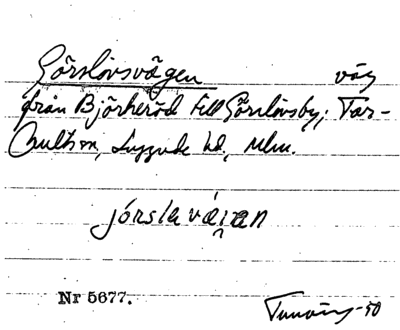 Görslövsvägen väg
från Björkeröd till Görslövsby, Far-
hultsn, Luggude hd, Mlm.
jórslaväɪan
Nr 5677. -50